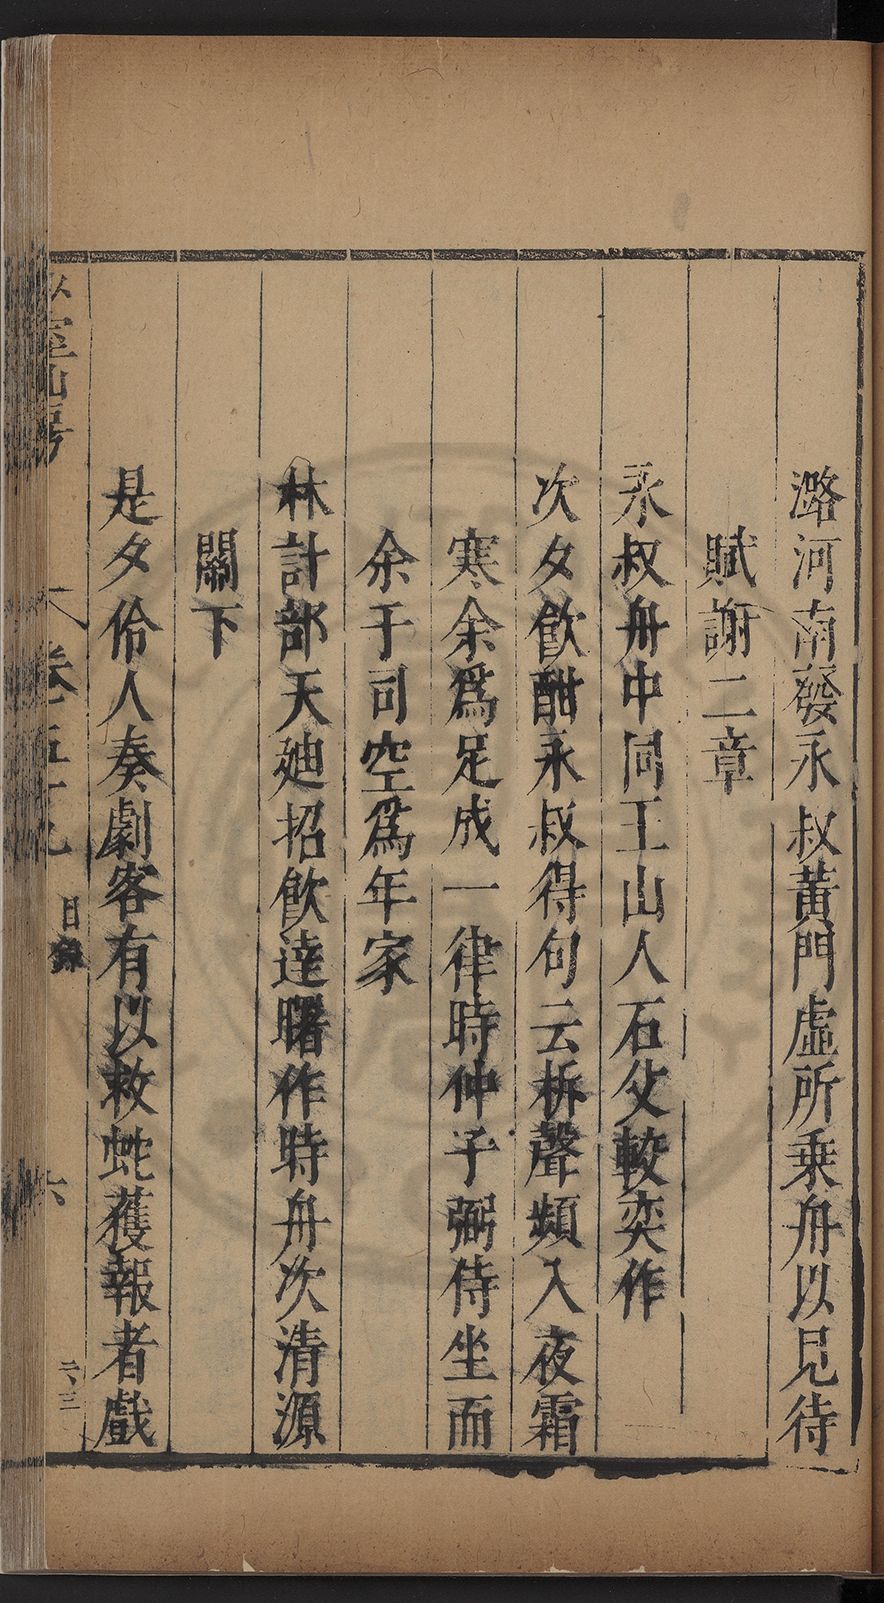 潞河南發永叔黃門虛所乗舟以見待
賦謝二章
永叔舟中同王山人石父較奕作
次夕飲酣永叔得句云柝聲頻入夜霜
寒余爲足成一律時仲子弼侍坐而
余于司空爲年家
林計部天廸招飲達曙作時舟次清源
閘下
是夕伶人奏劇客有以救蛇獲報者戲
少室山房
卷五十九
目錄
六
二、三